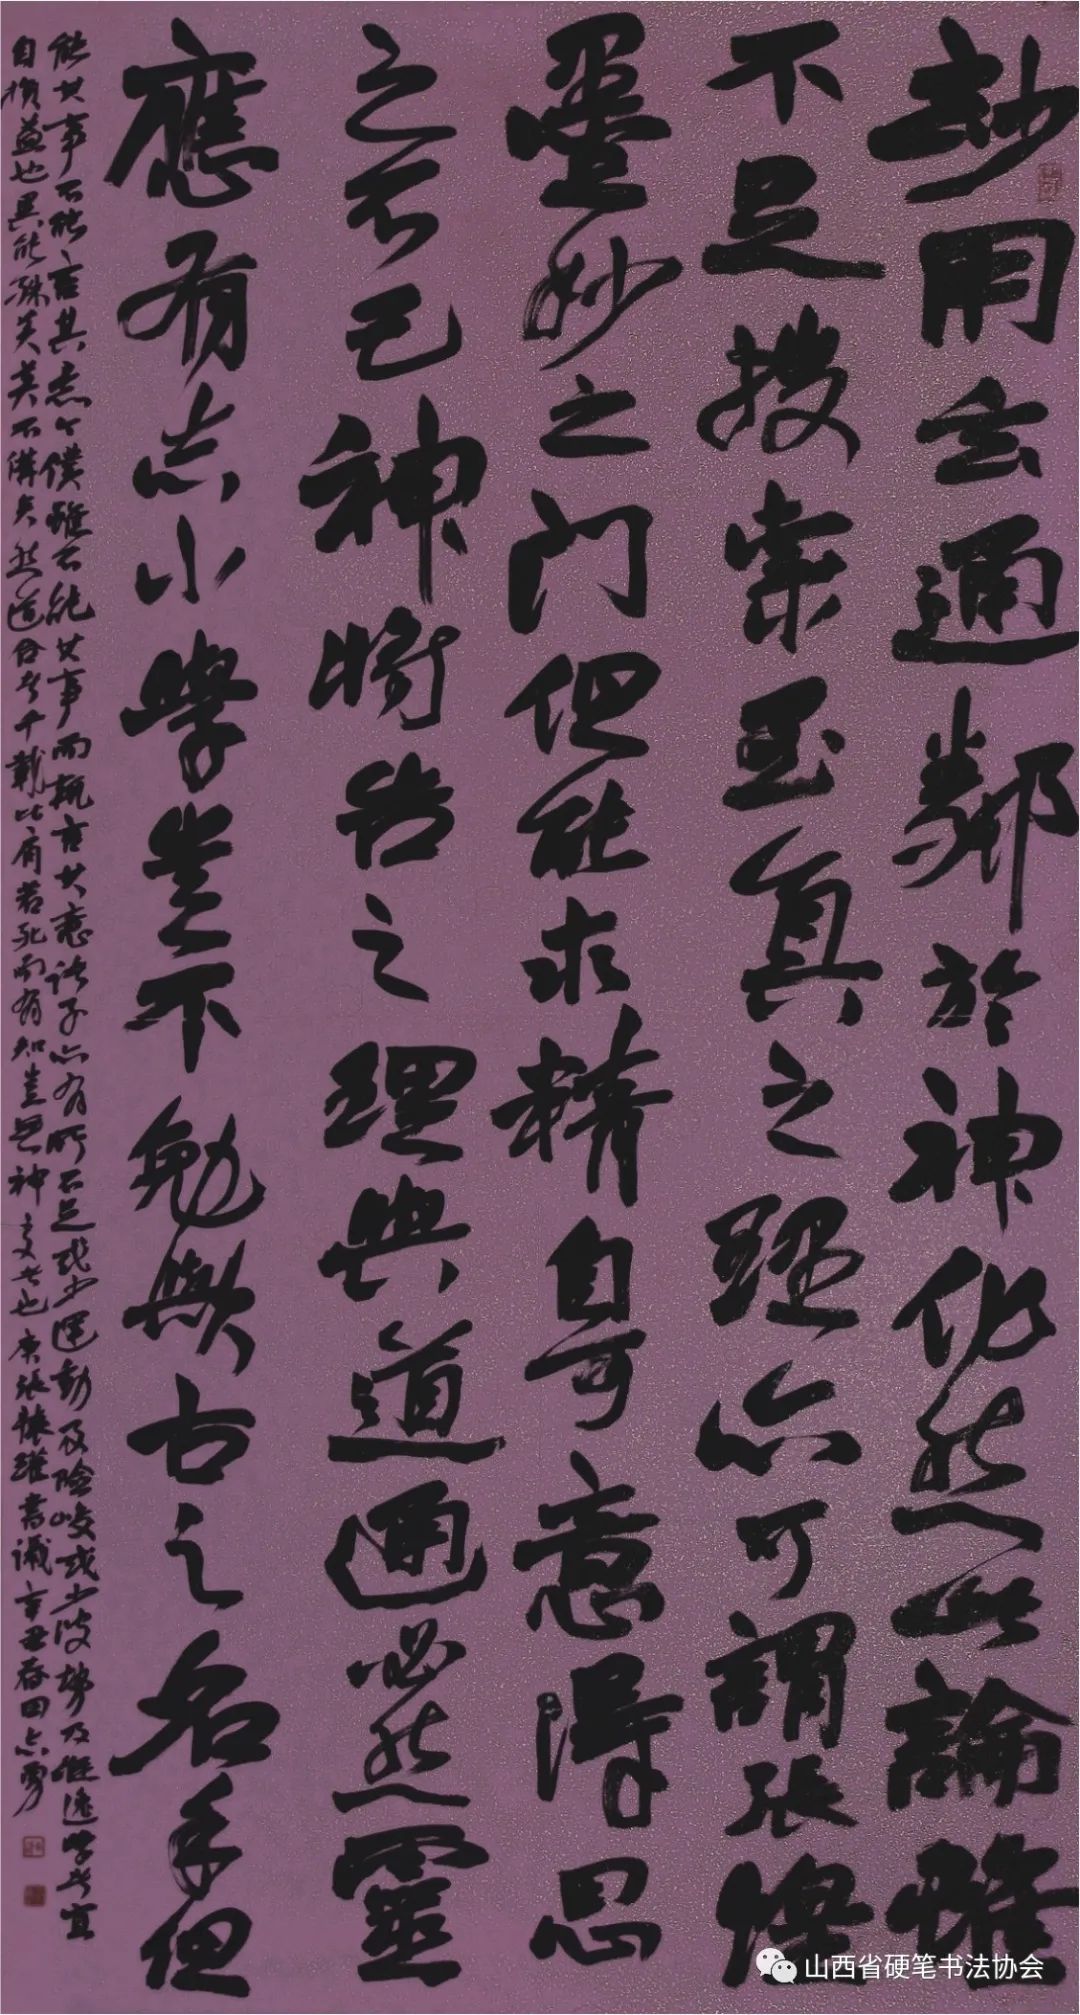 妙用玄通鄰於神化然此論雖
不足搜索至真之理亦可謂張皇
墨妙之門但能求精自可意得思
之不已神將告之理與道通必然靈
應有志小學豈不勉與古之名手但
能其事不能言其意今僕雖不能其事而輒言其意諸子亦有所不足或少運動及險峻或少波勢及縱逸學者宜
自損益也異能殊美莫不備矣然道合者千載比肩若死而有知豈無神交者也 唐張懷瓘書議辛丑春田亦勇
山西省硬笔书法协会